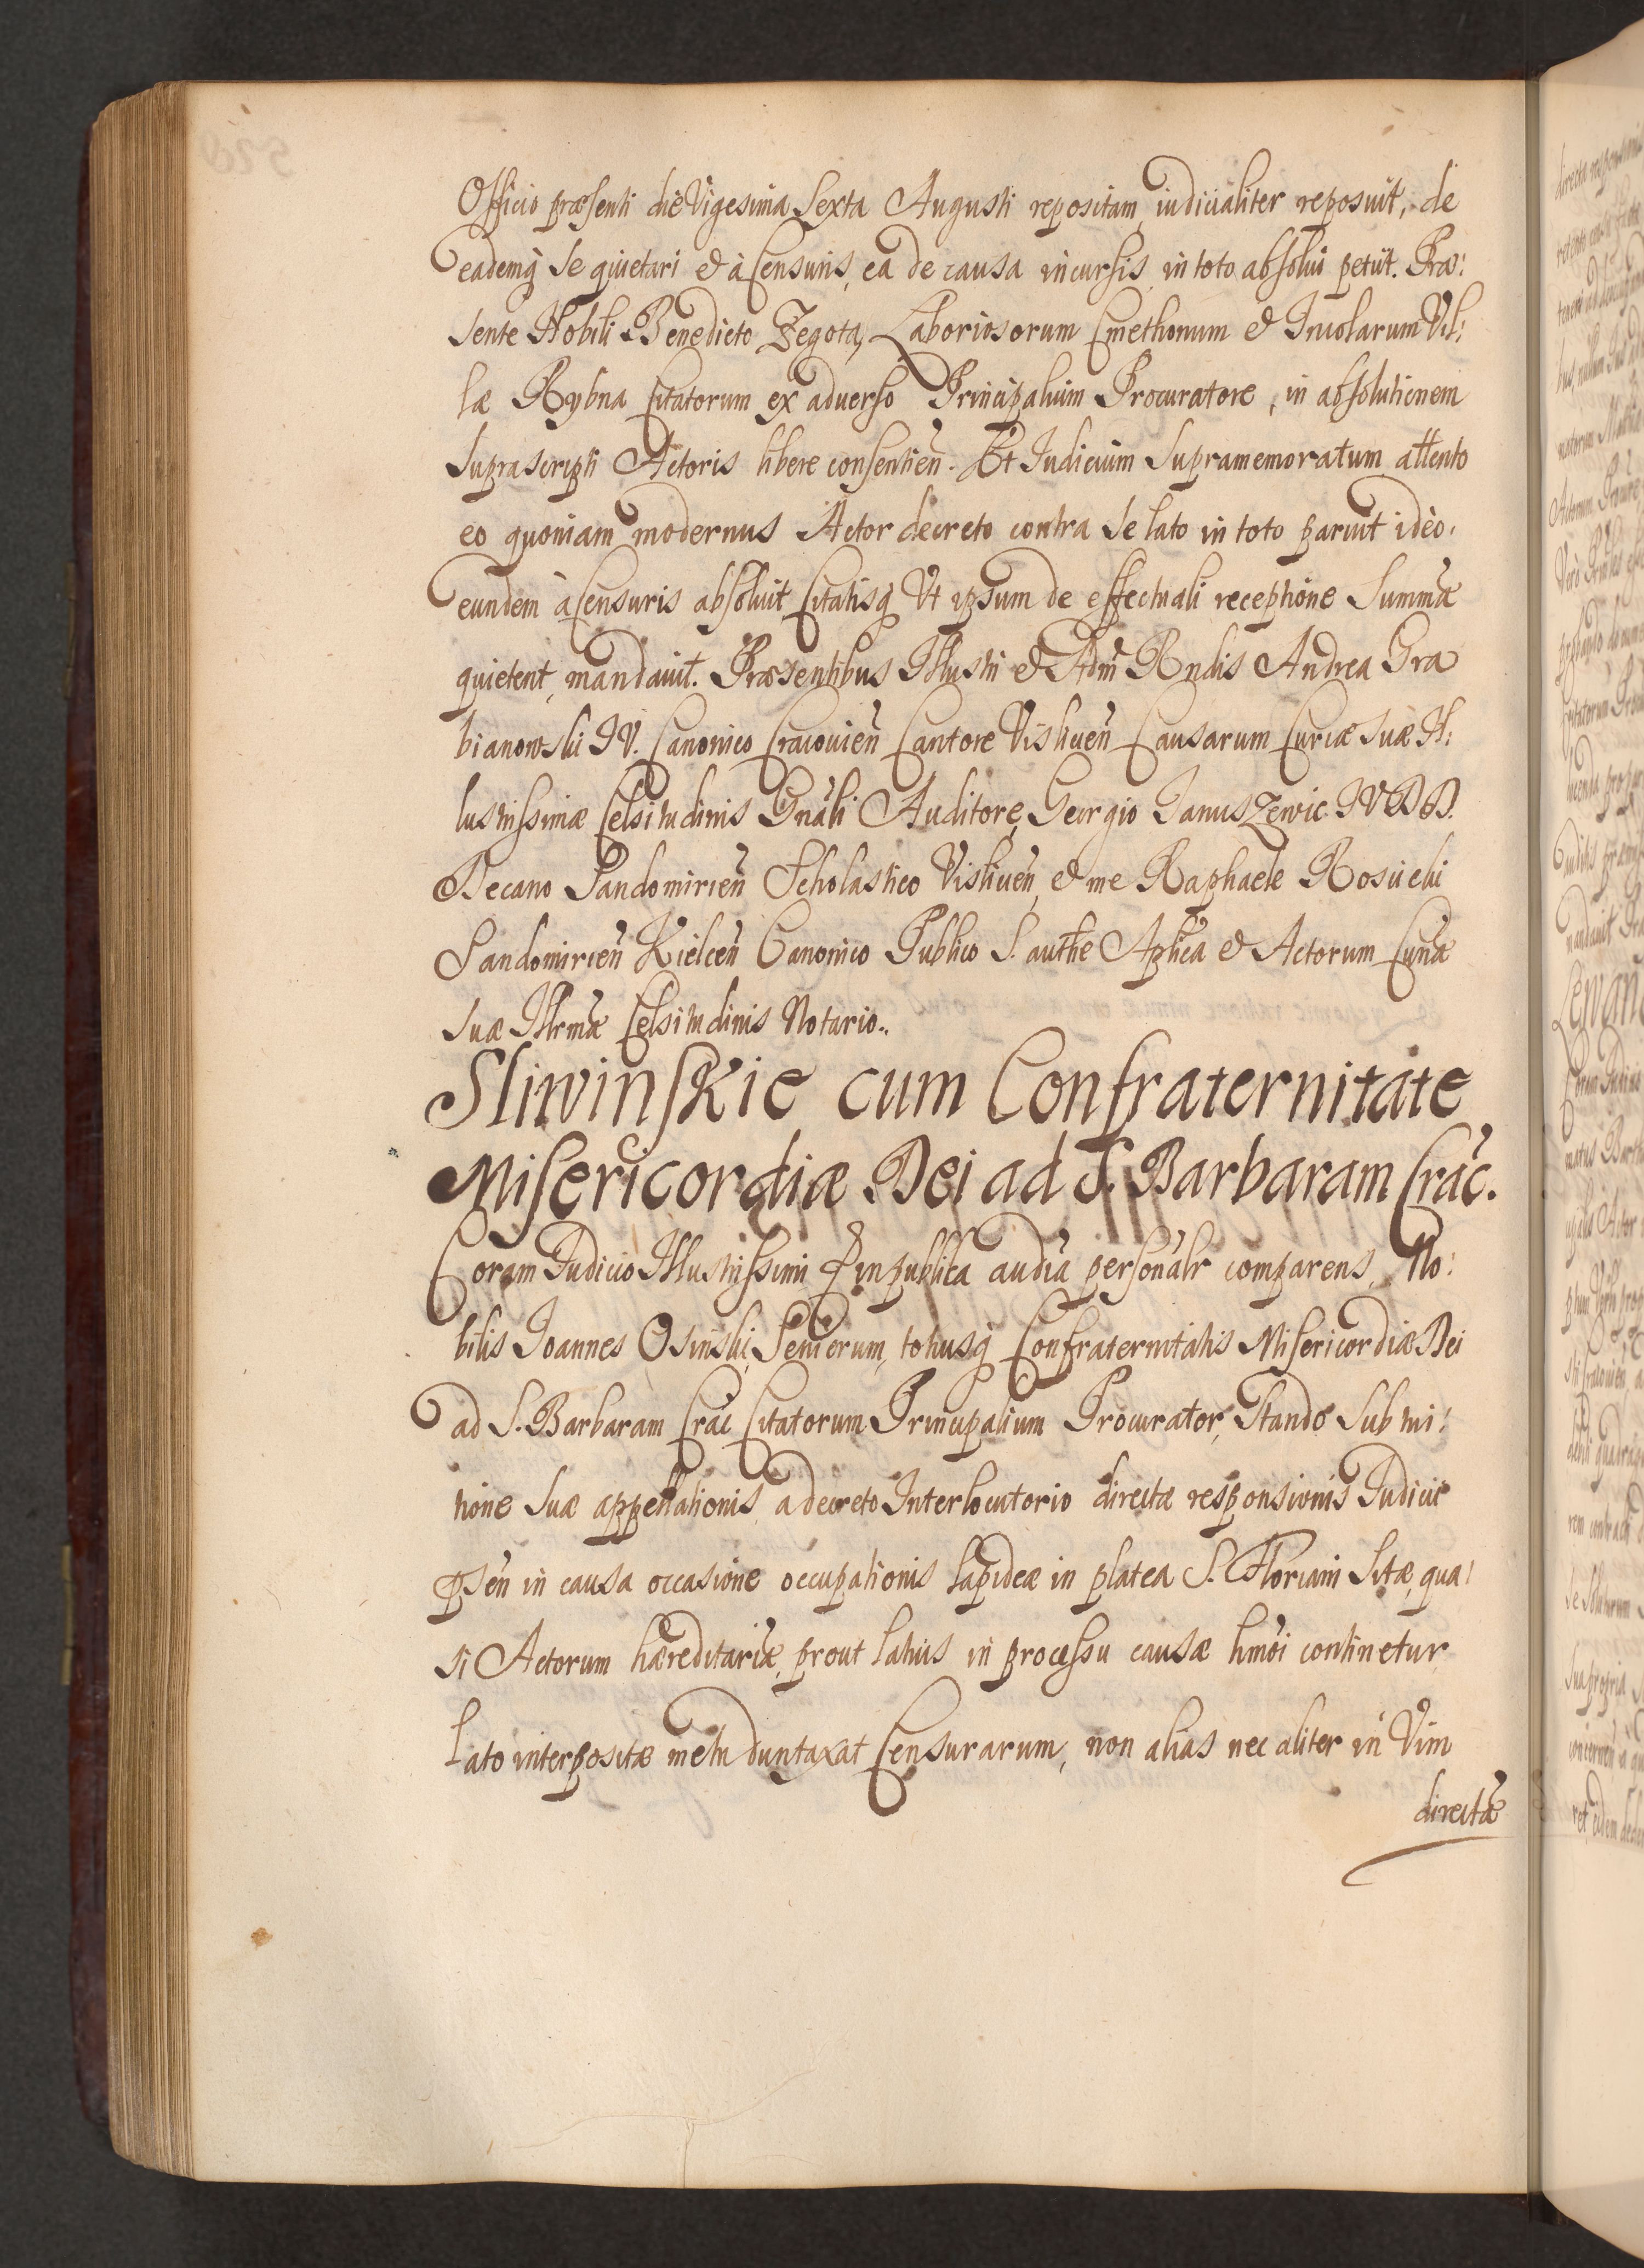 Officio præsenti die Vigesima Sexta Augusti repositam iudicialiter reposuit, de
eademq̨ se quietari et à Censuris, ea de causa incursis in toto absolui petiit. Præ:
sente Nobili Benedicto Zegota, Laboriosorum Cmethonum et Incolarum Vil:
læ Rybna Citatorum ex aduerso Principalium Procuratore, in absolutionem
suprascripti Actoris libere consentien̄. Et Iudicium supramemoratum attento
eo quoniam modernus Actor decreto contra se lato in toto paruit ideò
eundem à Censuris absoluit Citatisq̨ Vt ipsum de effectuali receptione summæ
quietent, mandauit. Præsentibus Illustri et Adm̄ Rndis Andrea Gra
bianowski IV. Canonico Cracouien̄ Cantore Visliuen̄ Causarum Curiæ suæ Il:
lustrissimæ Celsitudinis Gnāli Auditore, Georgio Ianuszewic IVDD.
Decano Sandomirien̄ Scholastico Visliuen̄, et me Raphaele Rosiecki
Sandomirien̄ Kielcen̄ Canonico Publico S. auth̄e Aplīca et Actorum Curiæ
suæ Illrmæ Celsitudinis Notario.
Sliwinskie cum Confraternitate
Misericordiæ Dei ad S. Barbaram Crac̄.
Coram Iudicio Illustrissimi P in publica audīa personalr̄ comparens, No:
bilis Ioannes Osinski, Seniorum, totiusq̨ Confraternitatis Misericordiæ Dei
ad S. Barbaram Crac̄ Citatorum Principalium Procurator, Stando sub mi:
tione suæ appellationis, a decreto Interlocutorio directæ responsionis Iudicij
p̄sen̄ in causa occasione occupationis lapideæ in platea S. Floriani sitæ, qua:
si Actorum hæreditariæ, prout latius in processu causæ hmōi continetur
lato interpositæ metu duntaxat Censurarum, non alias nec aliter in Vim
directæ